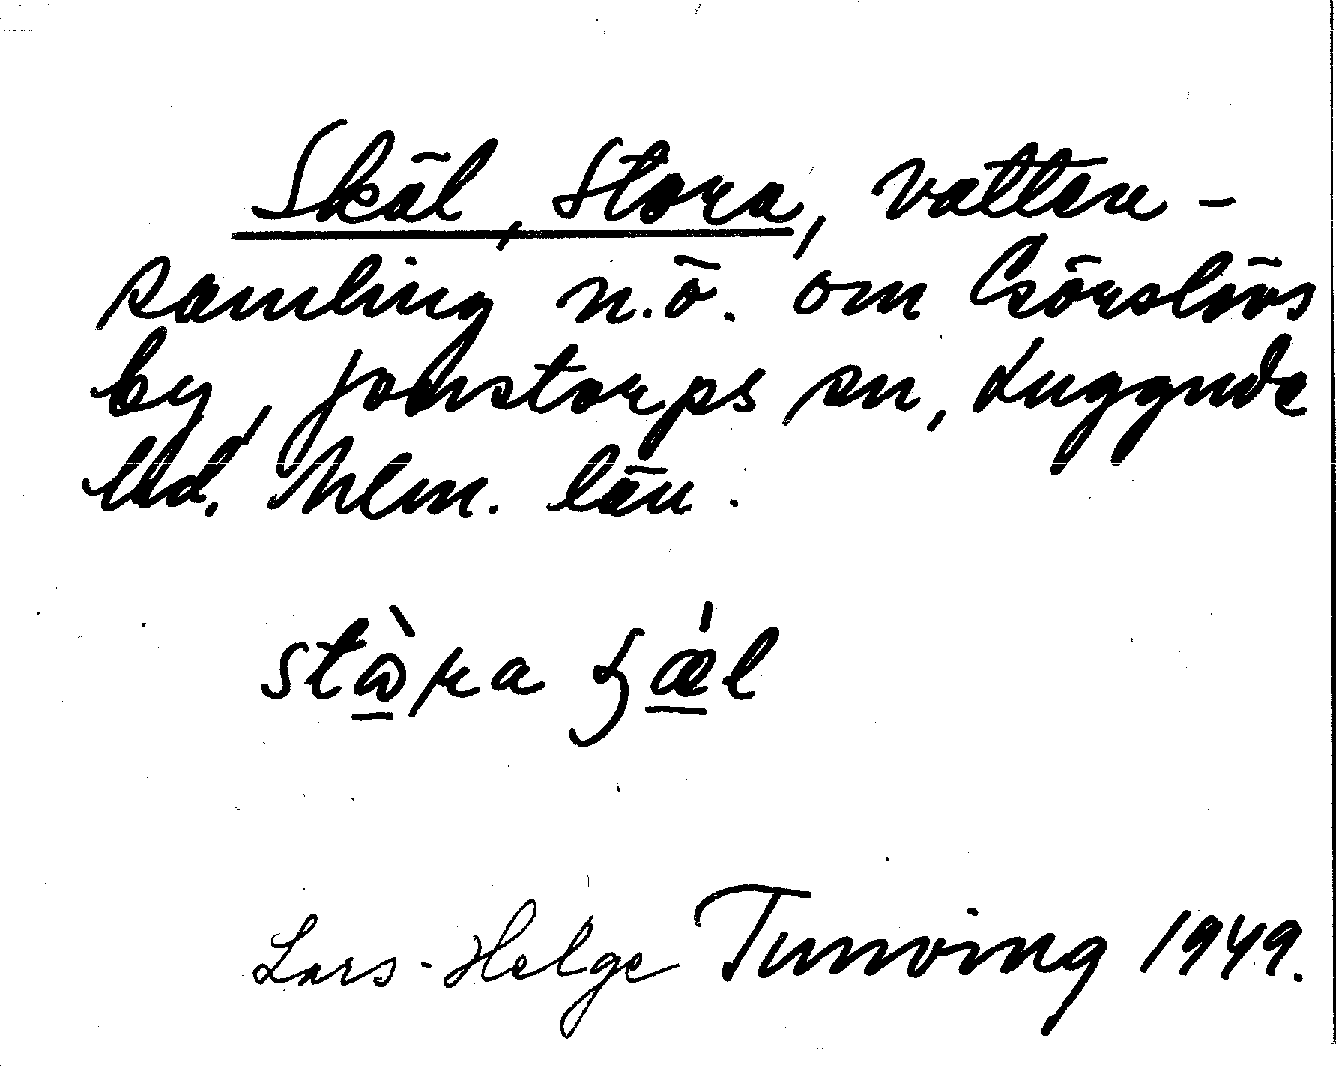 Skäl, Stora, vatten-
samling n.ö. om Görslövs
by, Jonstorps sn, Luggude
hd. Mlm. län.
stὼ̲ra ʂǽ̲l
Lars-Helge Tunving 1949.